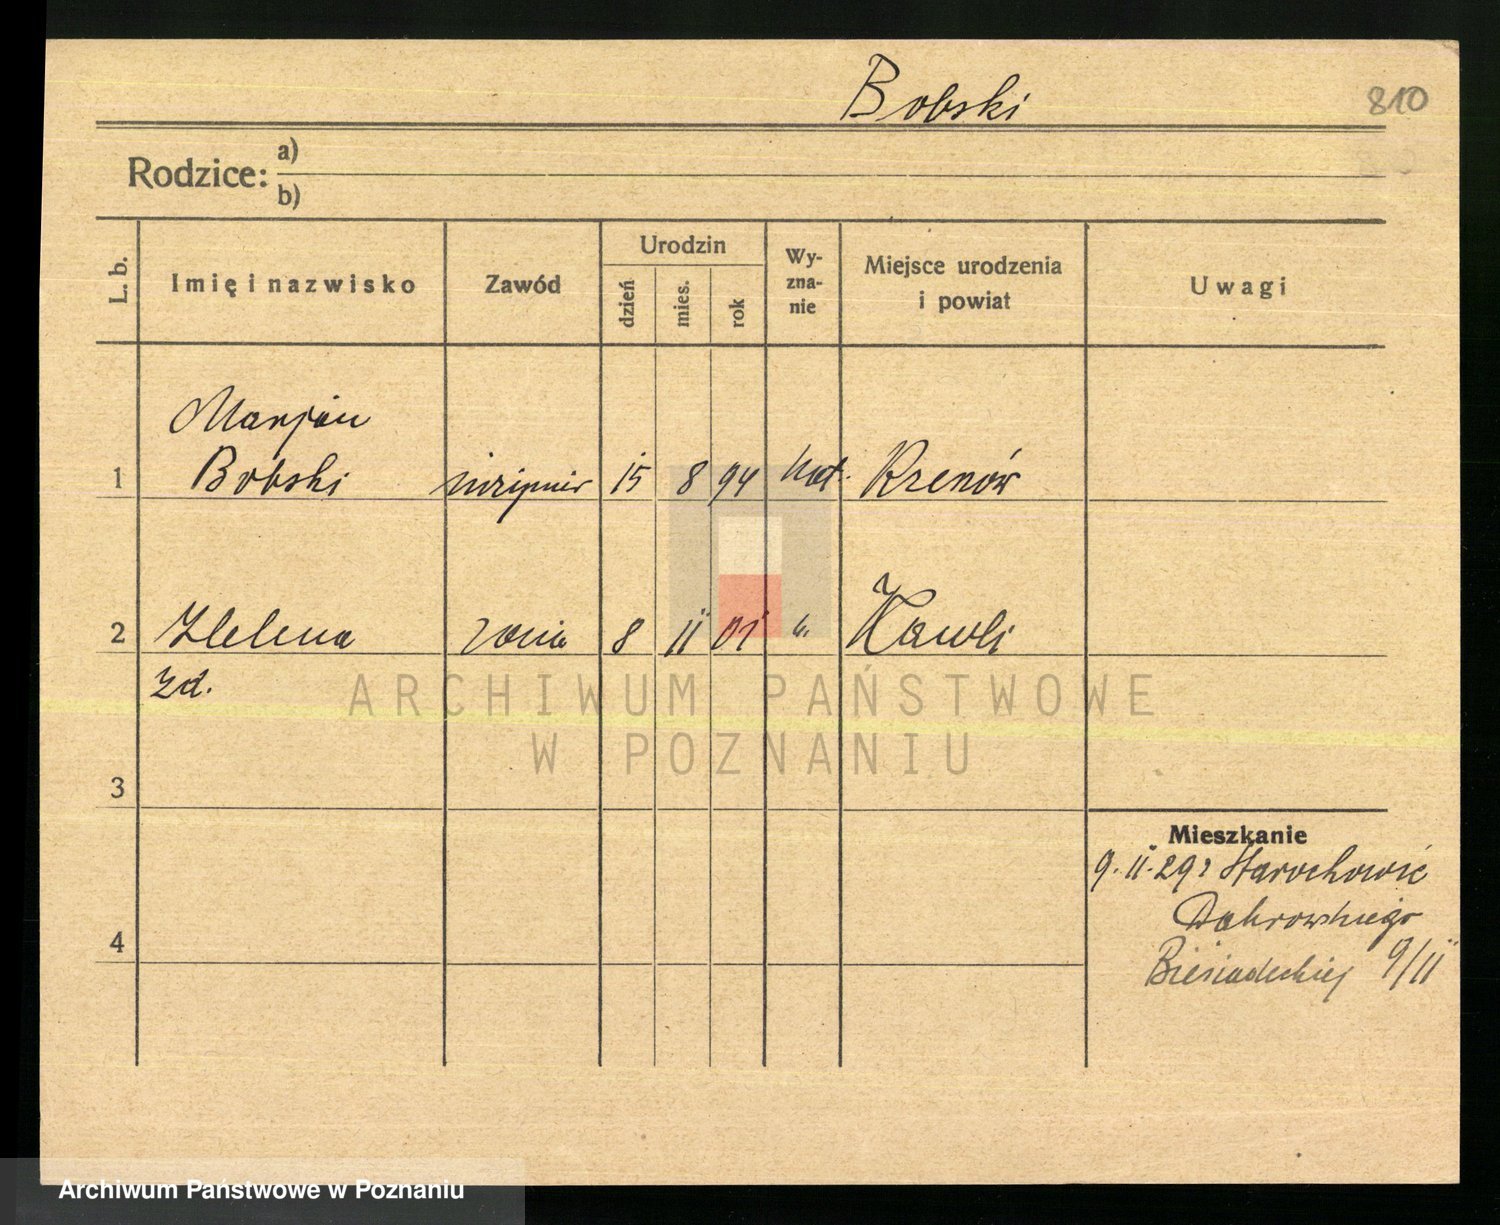 Bobski
810
Rodzice: a)
b)
L. b.
Imię i nazwisko
Zawód
Urodzin
dzień
mies.
rok
Wy-
zna-
nie
Miejsce urodzenia
i powiat
Uwagi
Marjan
1 Bobski inżynier 15 8 94 kat. Rzenów
2 Helena żona 8 11 01 "
zd.
3
4
Mieszkanie
9.11.29
Dąbrowskiego
Biesiadeckiej 9/11
ARCHIWUM PAŃSTWOWE
W POZNANIU
Archiwum Państwowe w Poznaniu